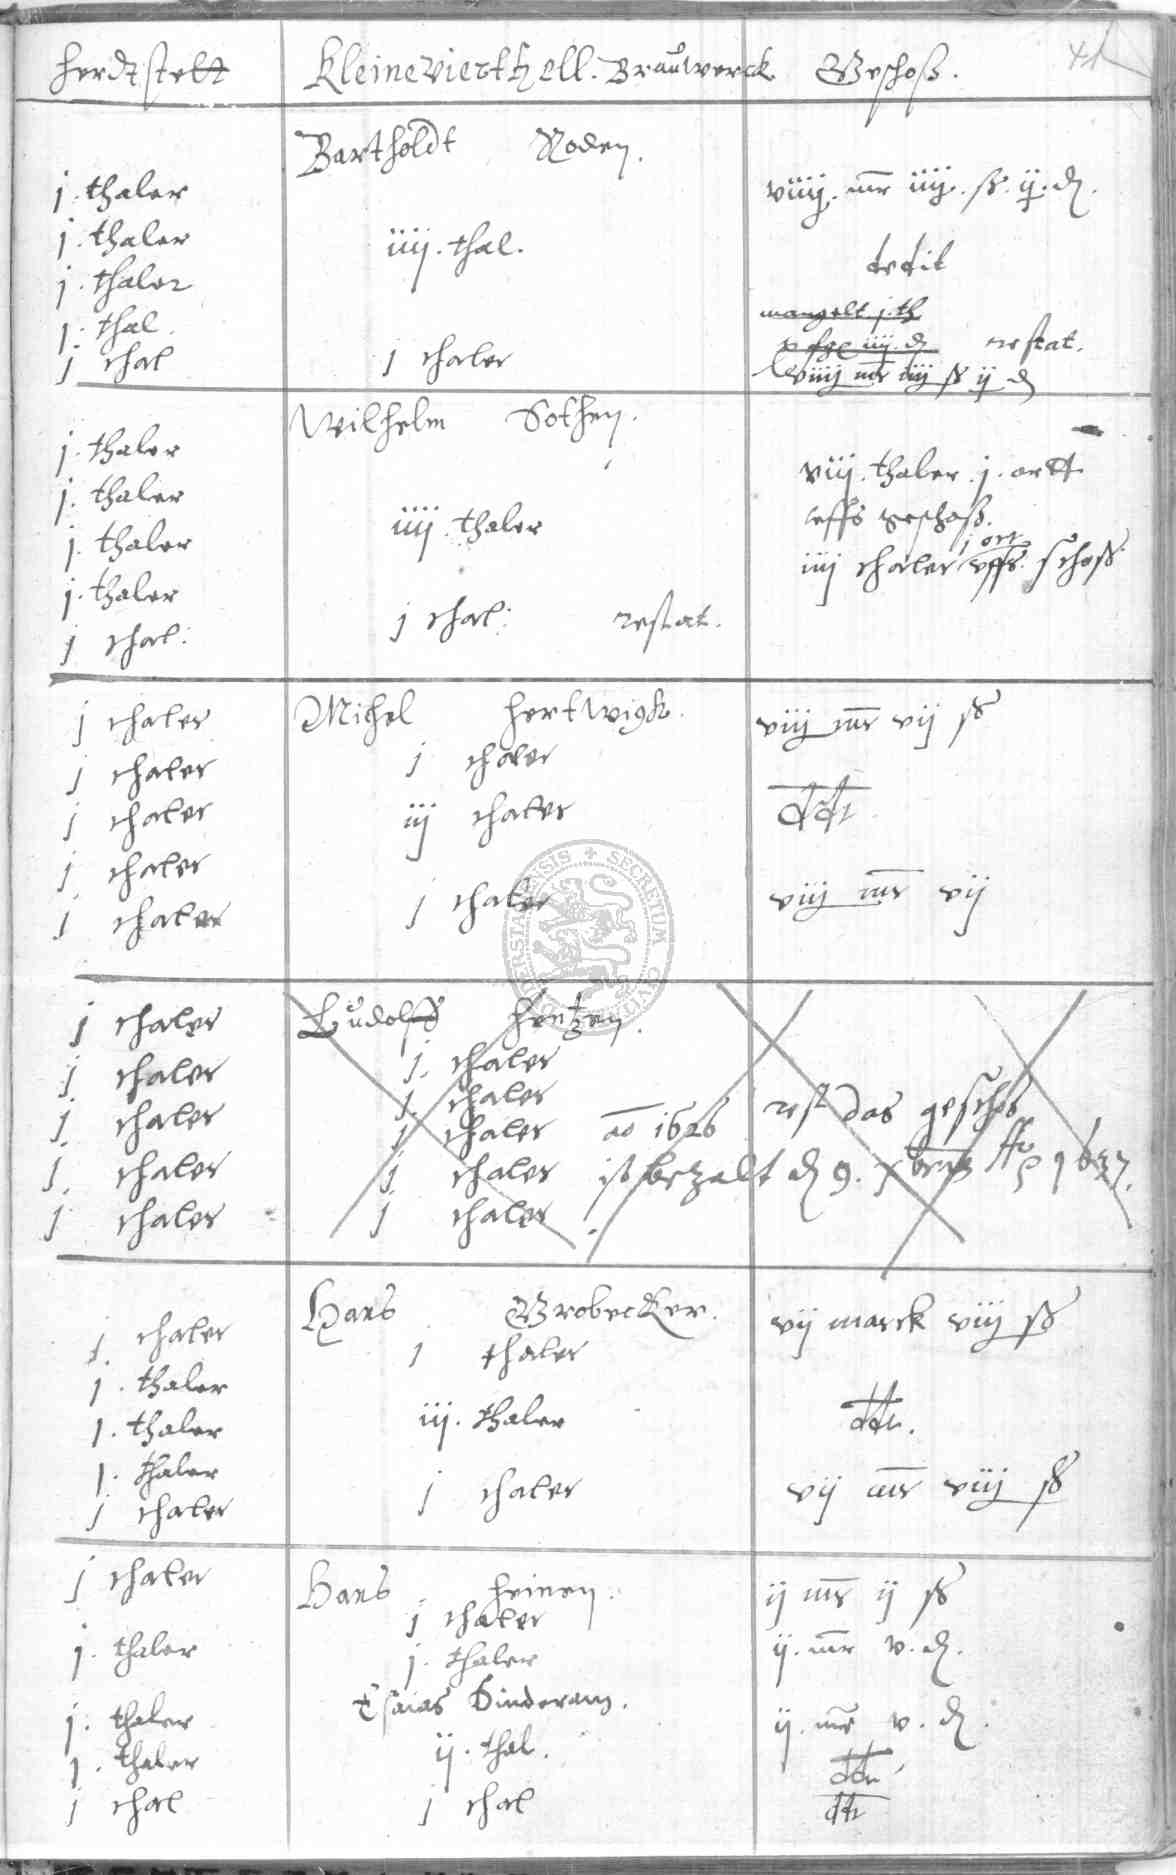 herdtstett Kleinevierthell. Brauwerck Geschoß. 41
Bartholdt Noden.
j. thaler viiij. mr iiij. ß. ij. d.
j. thaler iiij. thal.
dedit
j. thaler
mangelt j. th
j. thal. iiij. d restat.
j thal j thaler viiij mr iiij ß ij d
Wilhelm Sothen.
j. thaler viij. thaler j. ortt
j. thaler geschoß.
j. thaler iiij. thaler j ort
iiij thaler vffs. schoß
j. thaler
j thal: j thal: restat.
j thaler Michel hertwigk. viij mr vij ß
j thaler j thaler
j thaler iij thaler ddt
j thaler
j thaler j thaler viij mr vij
j thaler Ludolff hentzen.
j thaler j. thaler
j. thaler
j thaler j thaler ao 1626 rest das geschos
j. thaler j thaler ist bezalt d 9. 1627.
j thaler j thaler
Hans Grobecker. vij marck viij ß
j thaler j thaler
j. thaler
j. thaler iij. thaler ddt.
j. thaler
j thaler j thaler vij mr viij ß
j thaler Hans heinen. ij mr ij ß
j thaler
j. thaler j. thaler ij. mr v. d.
Esaias Hinderam.
j. thaler ij. mr v. d.
j. thaler ij. thal. ddt
j thal j thal dt
SECRETUM CIVITATIS